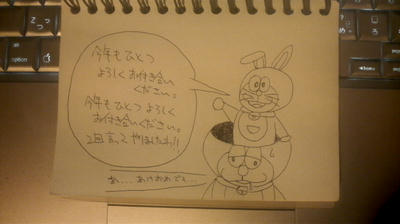 今年もひとつ
よろしくお付き合い
ください。
今年もひとつよろしく
お付き合いください。
2回言ってやりましたわ!!
あ....あけおめです...